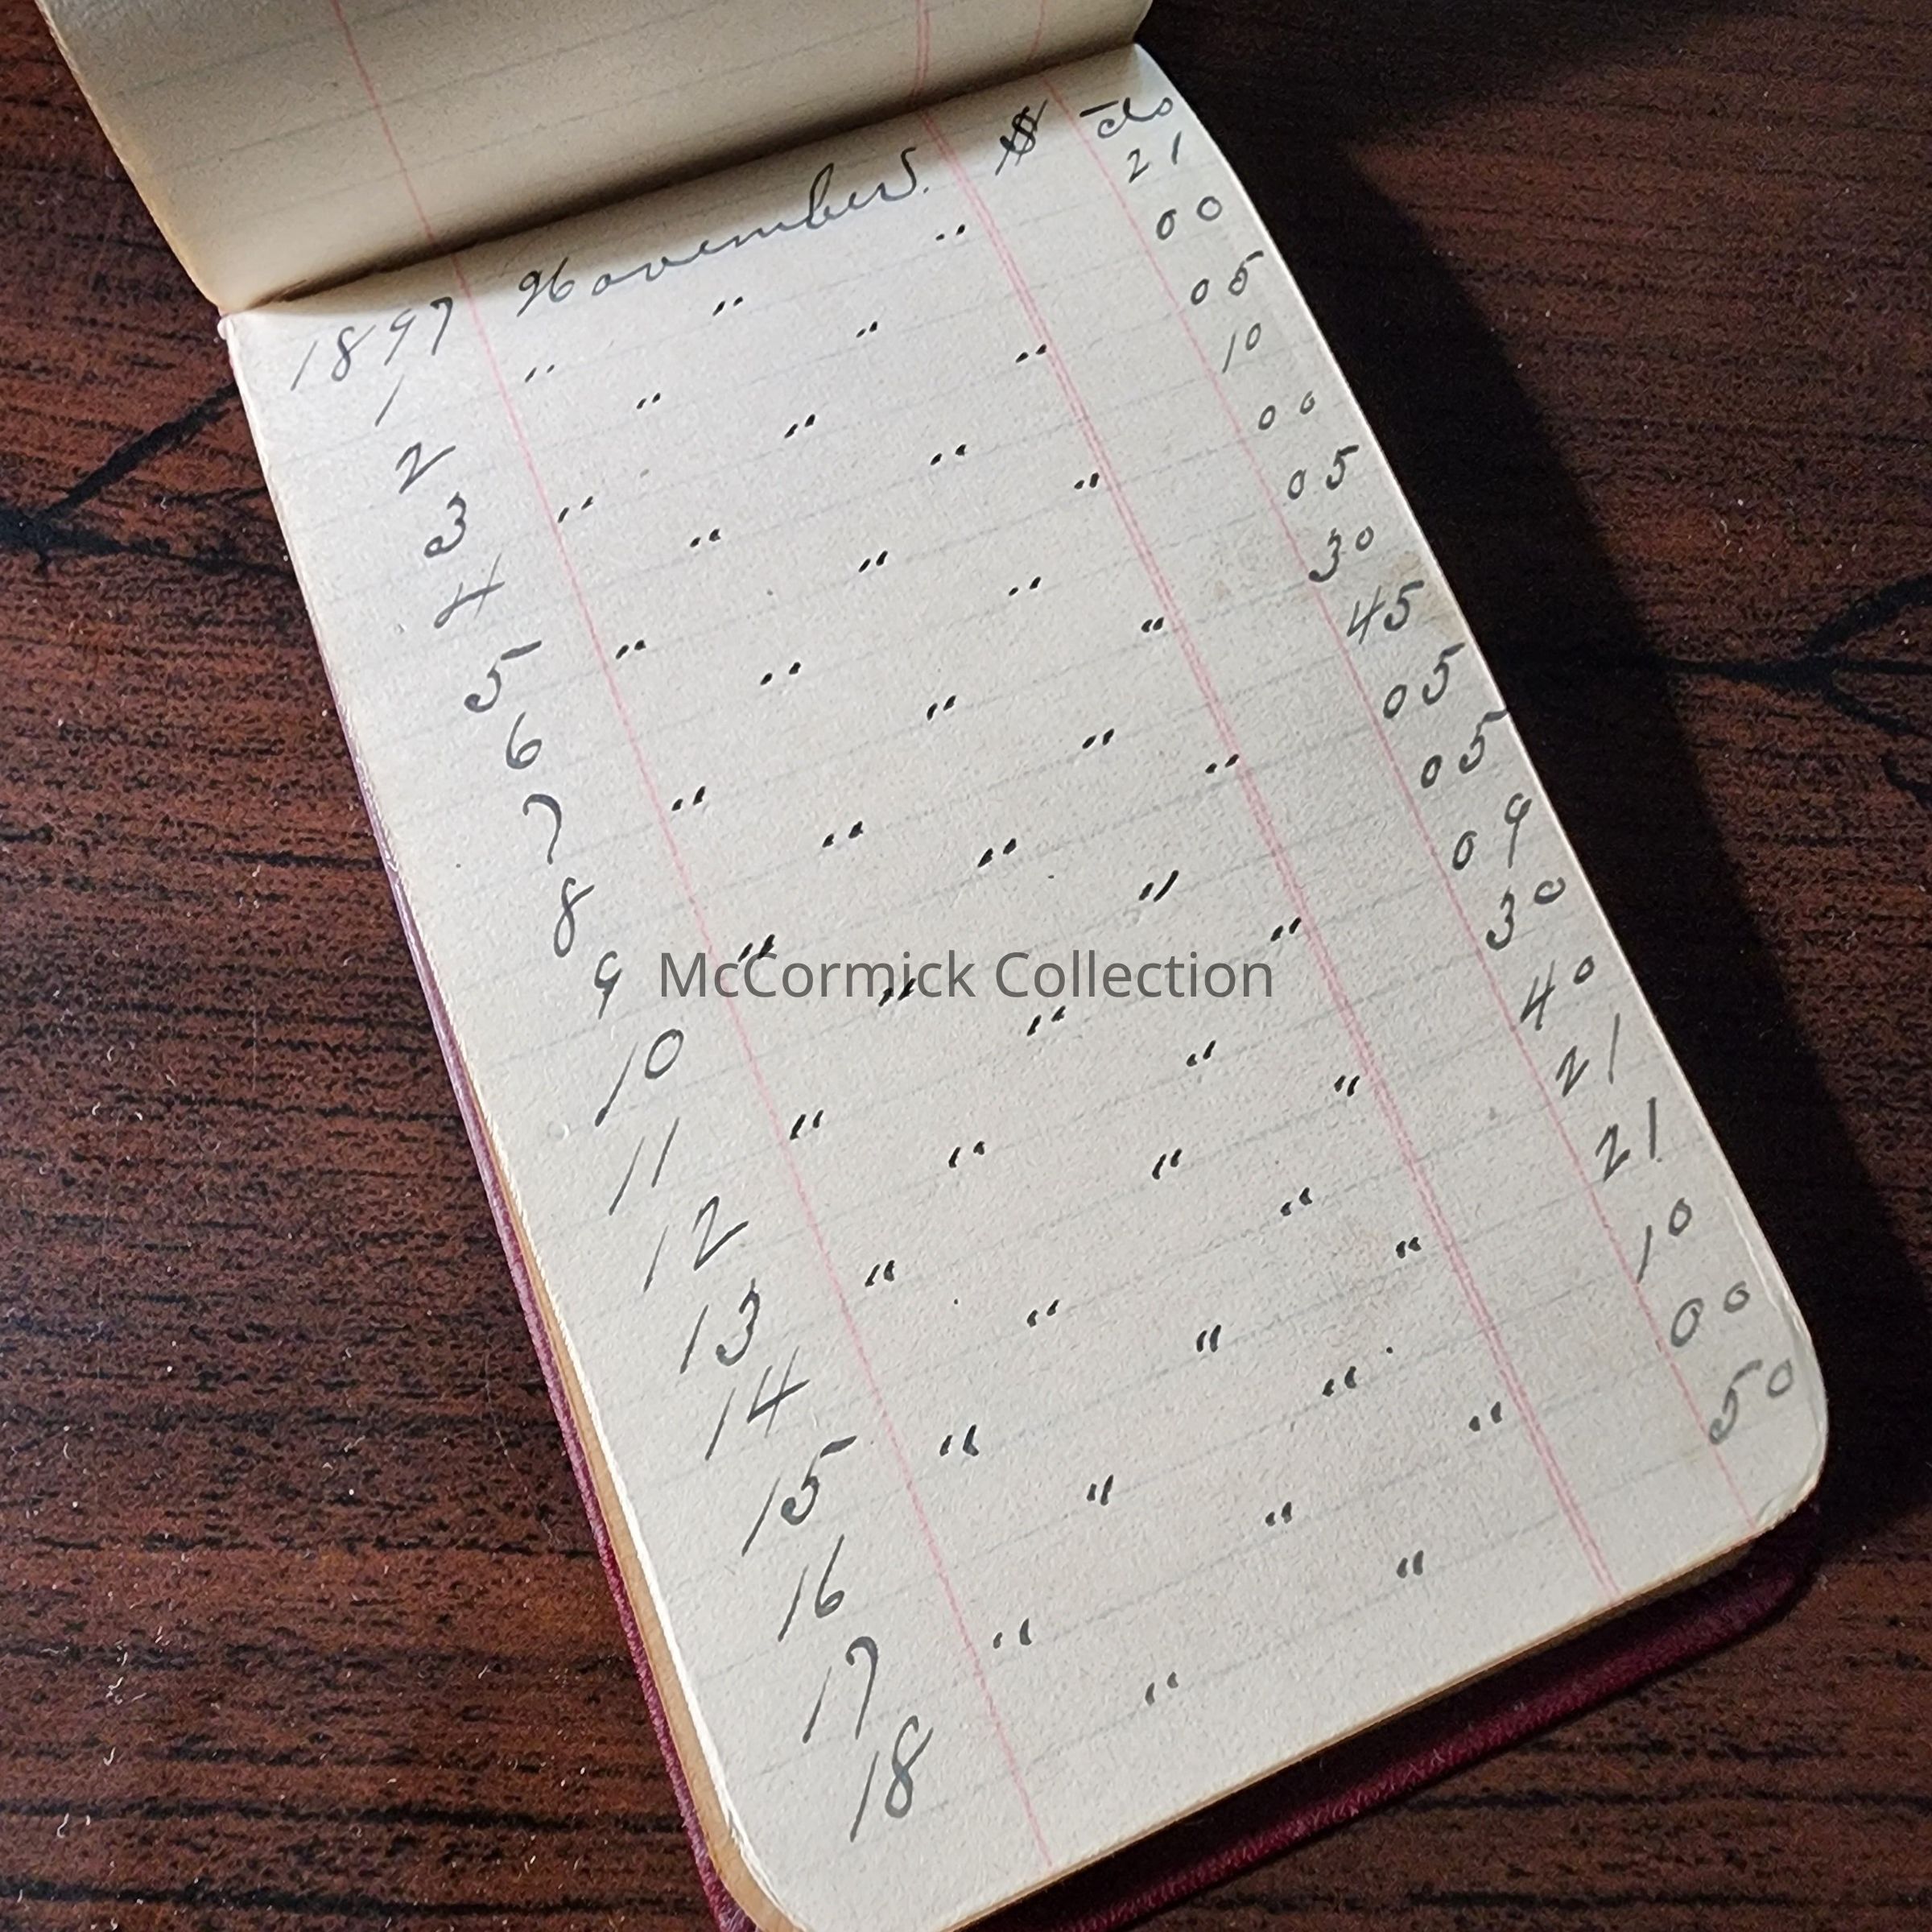 1897 November. $ cts
1 " " " 21
2 " " 00
3 " " " 05
4 " " 10
5 " " " 00
6 " " 05
7 " " " 30
8 " " 45
9 " " " 05
10 " " 05
11 " " " 09
12 " " 30
13 " " " 40
14 " " 21
15 " " " 21
16 " " 10
17 " " " 00
18 " " 50
McCormick Collection